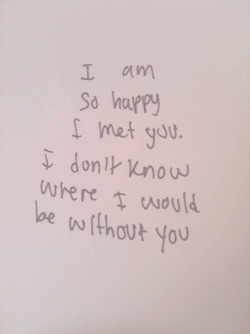 I am
so happy
I met you.
I don't know
where I would
be without you